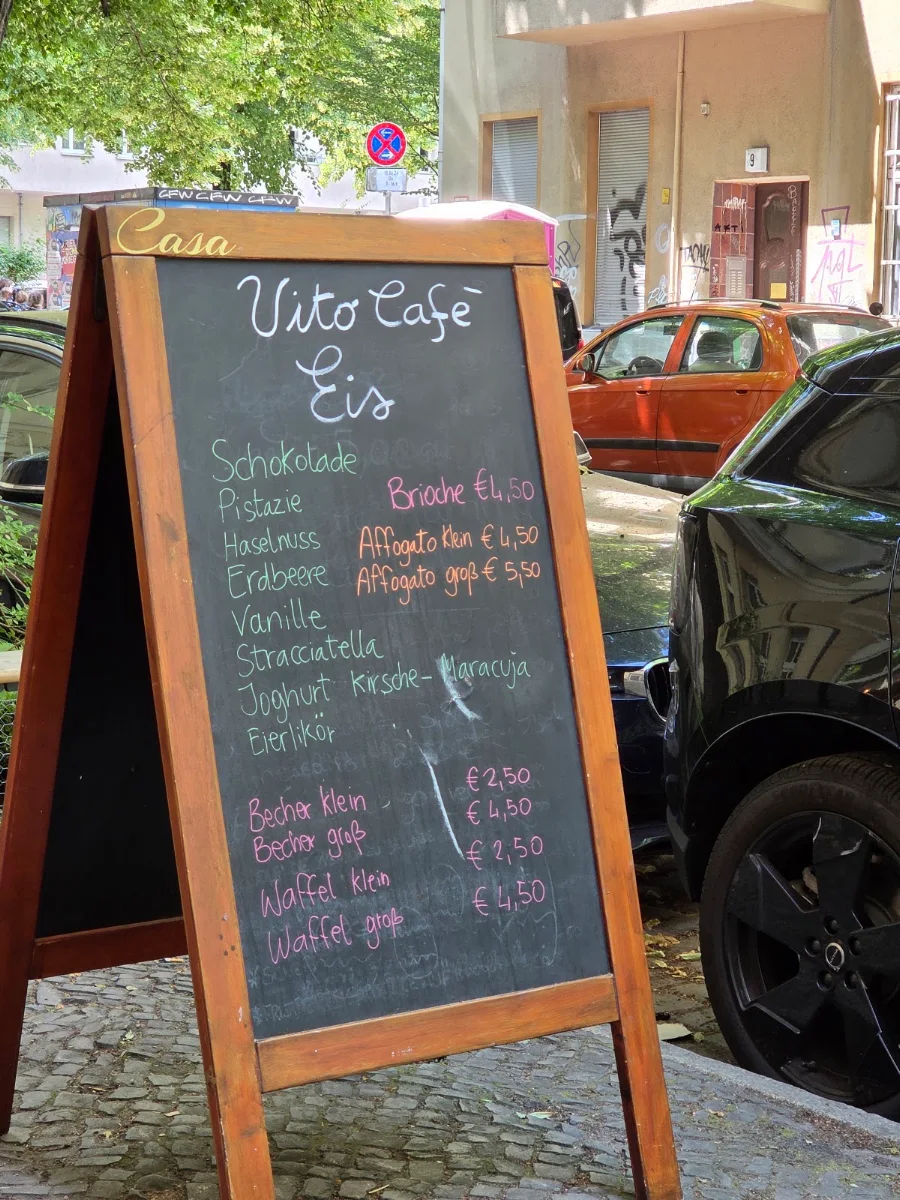 Casa
Vito Cafē
Eis
Schokolade
Pistazie
Brioche €4,50
Haselnuss
Affogato klein €4,50
Erdbeere
Affogato groß €5,50
Vanille
Stracciatella
Joghurt Kirsche-Maracuja
Eierlikör
Becher klein €2,50
Becher groß €4,50
Waffel klein €2,50
Waffel groß €4,50
9